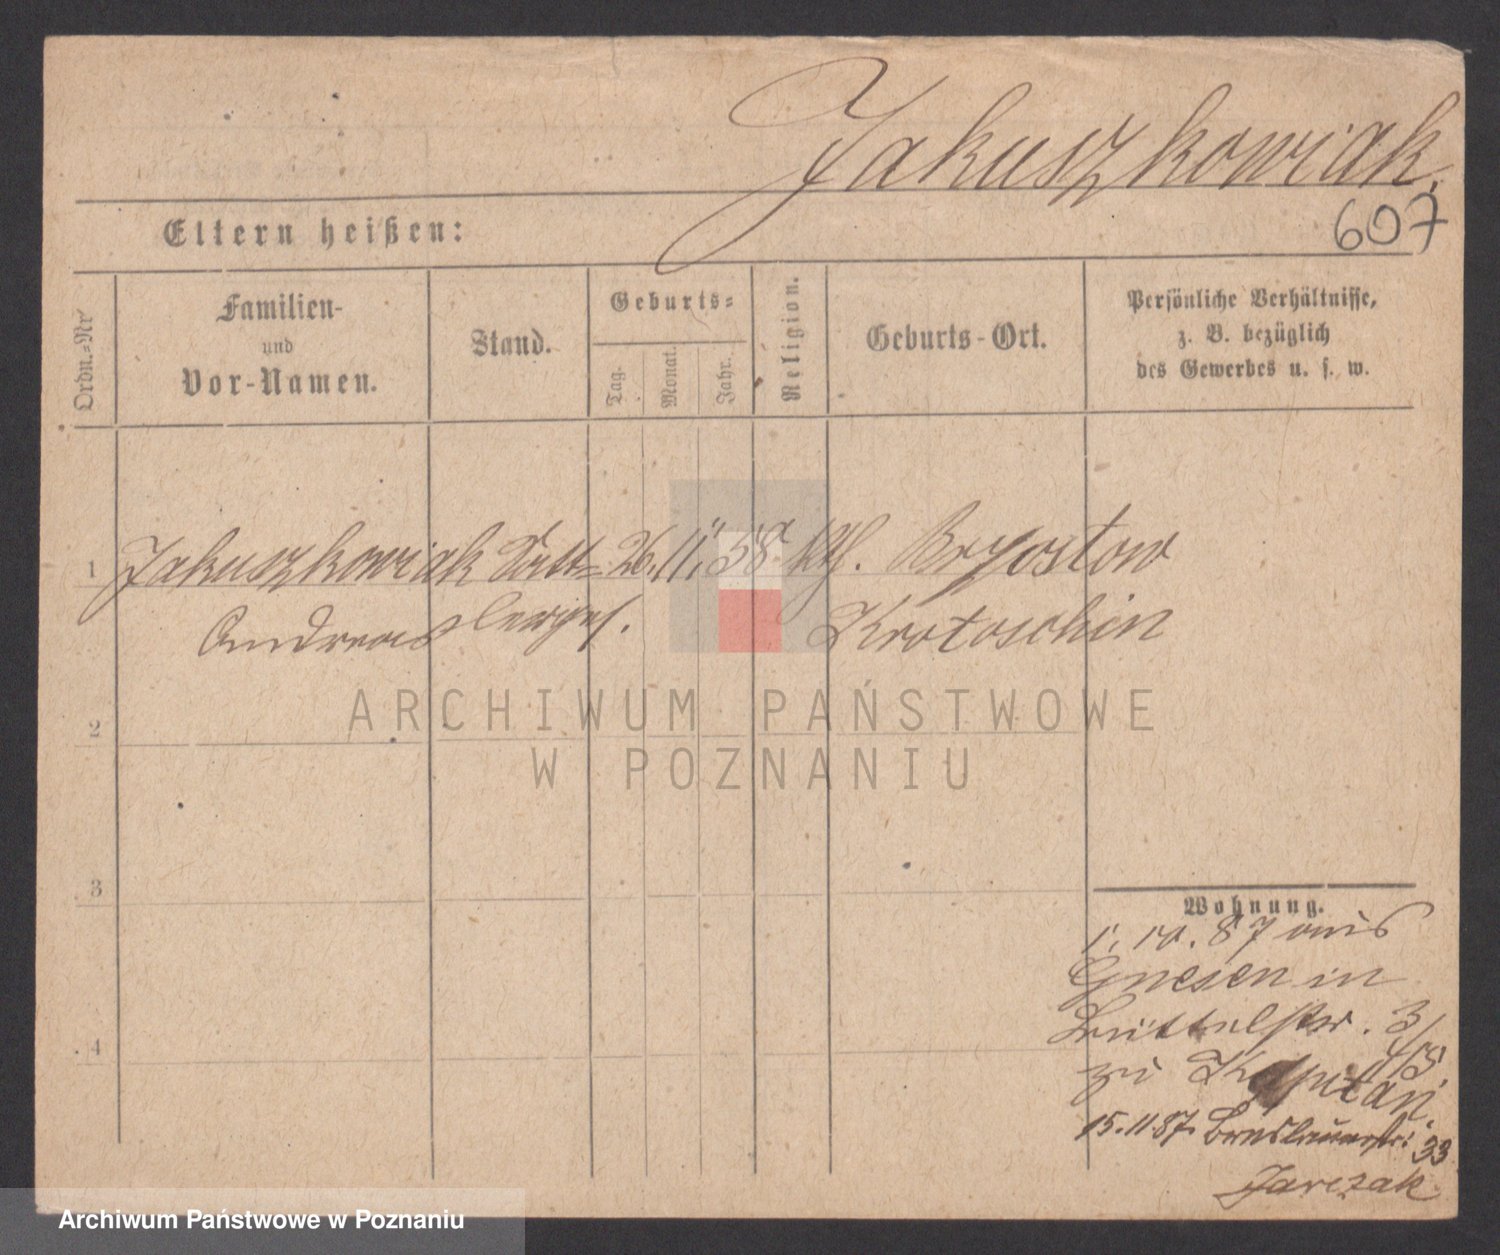 Jakuszkowiak.
607
Eltern heißen:
Ordn.-Nr
Familien-
und
Vor-Namen.
Stand.
Geburts-
Tag.
Monat.
Jahr.
Religion.
Geburts-Ort.
Persönliche Verhältnisse,
z. B. bezüglich
des Gewerbes u. s. w.
1 Jakuszkowiak Satt= 26. 11. 58 kth. Brzostow
Andreas Krotoschin
2
3
4
ARCHIWUM PAŃSTWOWE
W POZNANIU
Wohnung.
1. 10. 87 aus
Gnesen in
Büttelstr. 3/
zu Kapitan.
15.11 87. Breslauerstr: 33
Jarczak
Archiwum Państwowe w Poznaniu